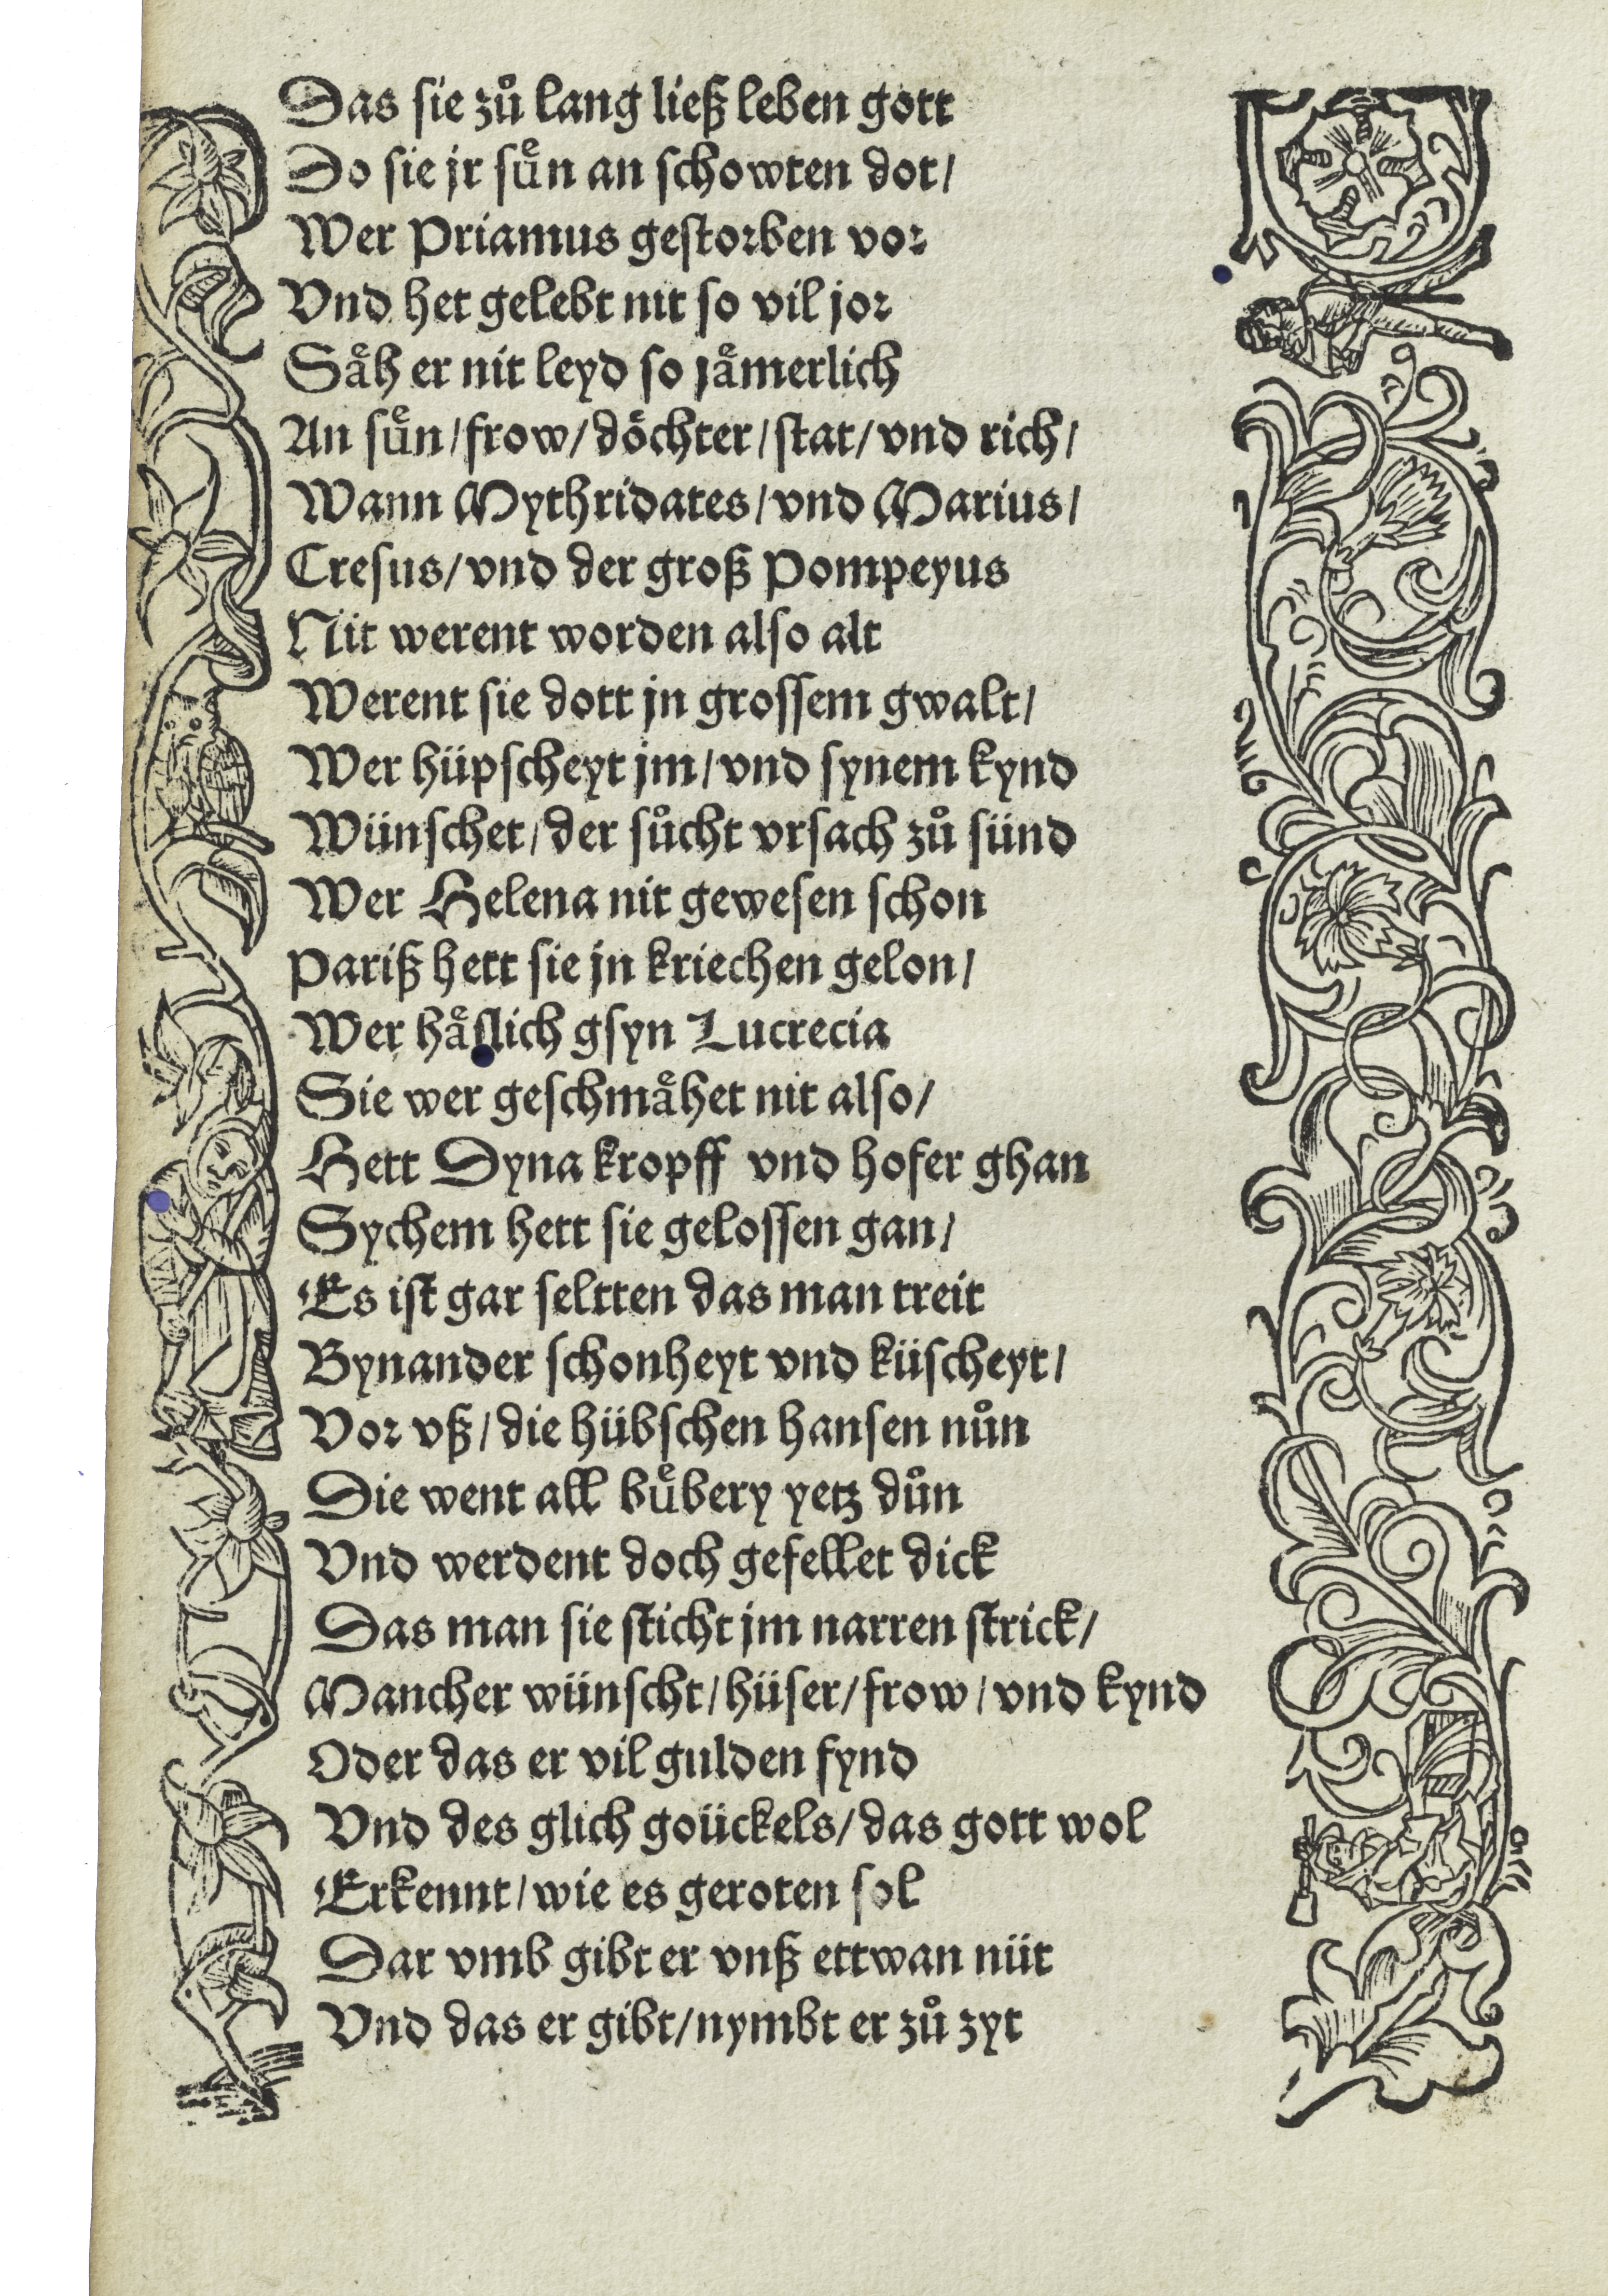 Das sie zuͦ lang ließ leben gott
Do sie jr suͤn an schowten dot/
Wer Priamus gestorben vor
Vnd het gelebt nit so vil jor
Saͤh er nit leyd so jaͤmerlich
An suͤn/frow/doͤchter/stat/vnd rich/
Wann Mythridates/vnd Marius/
Cresus/vnd der groß Pompeyus
Nit werent worden also alt
Werent sie dott jn grossem gwalt/
Wer hüpscheyt jm/vnd synem kynd
Wünschet/der suͦcht vrsach zuͦ sünd
Wer Helena nit gewesen schon
Pariß hett sie jn kriechen gelon/
Wer haͤslich gsyn Lucrecia
Sie wer geschmaͤhet nit also/
Hett Dyna kropff vnd hofer ghan
Sychem hett sie gelossen gan/
Es ist gar seltten das man treit
Bynander schonheyt vnd küscheyt/
Vor vß/die hübschen hansen nuͦn
Die went all buͤbery yetz duͦn
Vnd werdent doch gefellet dick
Das man sie sticht jm narren strick/
Mancher wünscht/hüser/frow/vnd kynd
Oder das er vil gulden fynd
Vnd des glich goückels/das gott wol
Erkennt/wie es geroten sol
Dar vmb gibt er vnß ettwan nüt
Vnd das er gibt/nymbt er zuͦ zyt